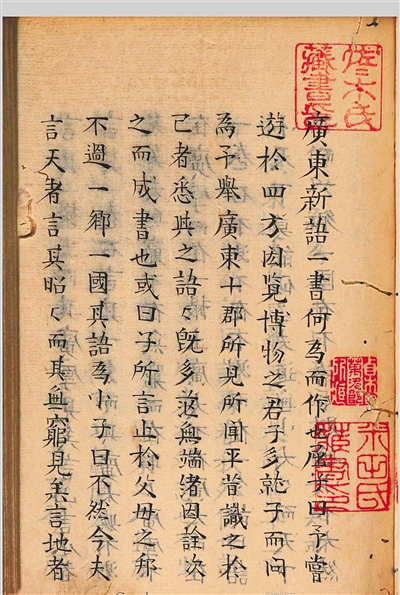 廣東新語一書何為而作也屈子曰予嘗
遊於四方因覽博物之君子多就予而問
為予舉廣東十郡所見所聞平昔識之於
己者悉與之語〻既多茫無端緒因詮次
之而成書也或曰子所言止於父母之邦
不過一鄉一國其語為小子曰不然今夫
言天者言其昭〻而其無窮見矣言地者
佐々木氏
藏書印